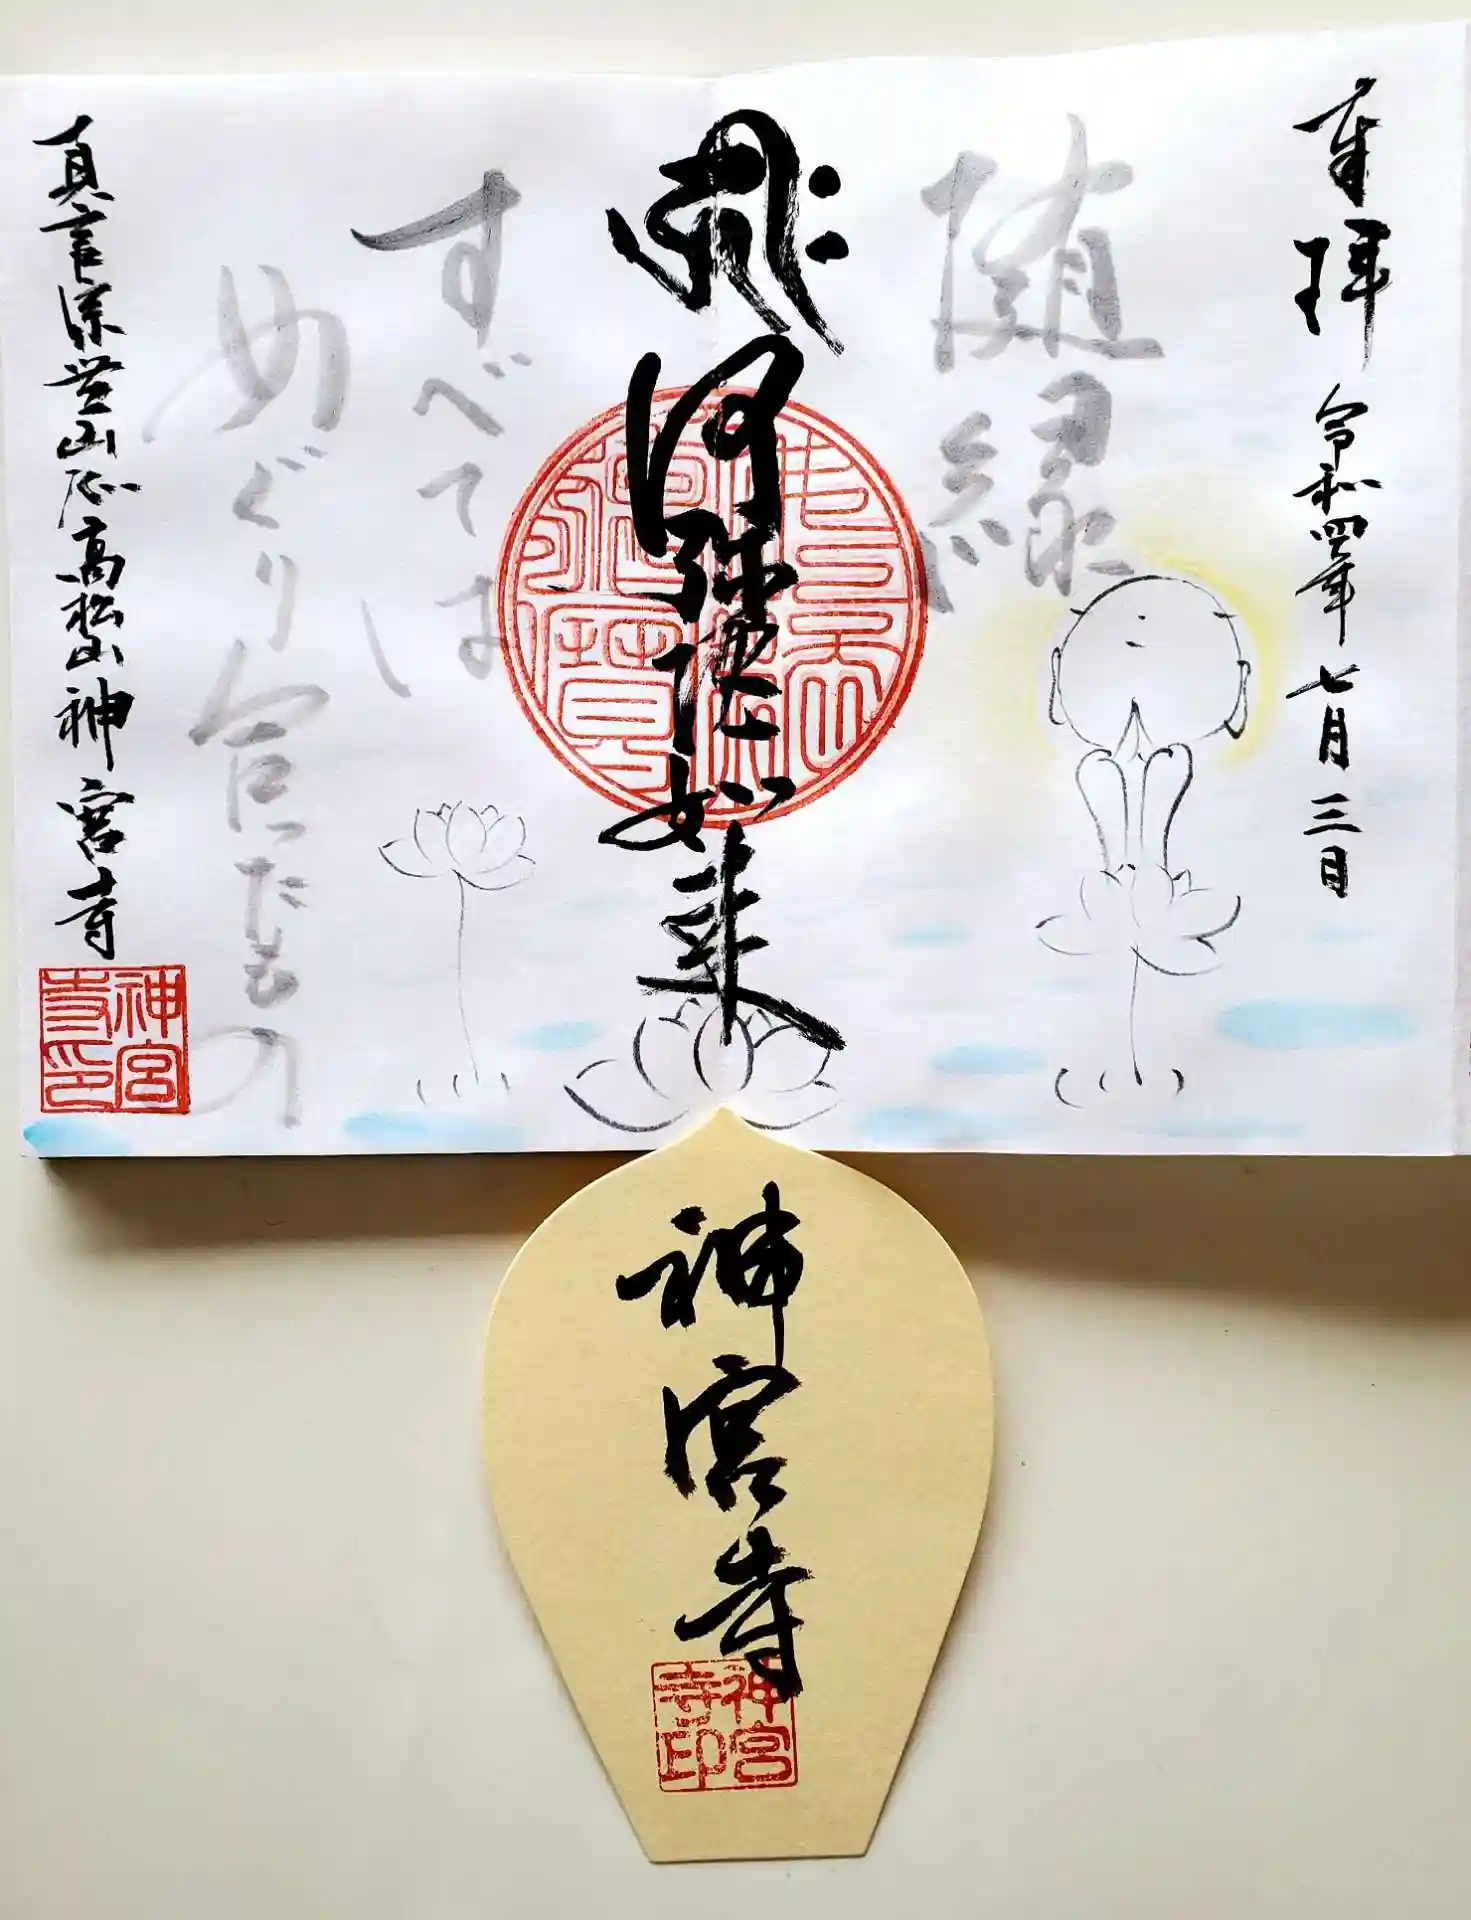 奉拝
令和四年七月三日
随縁
阿弥陀如来
すべては
めぐり合ったもの
高松山神宮寺
神宮寺印
神宮寺
神宮寺印